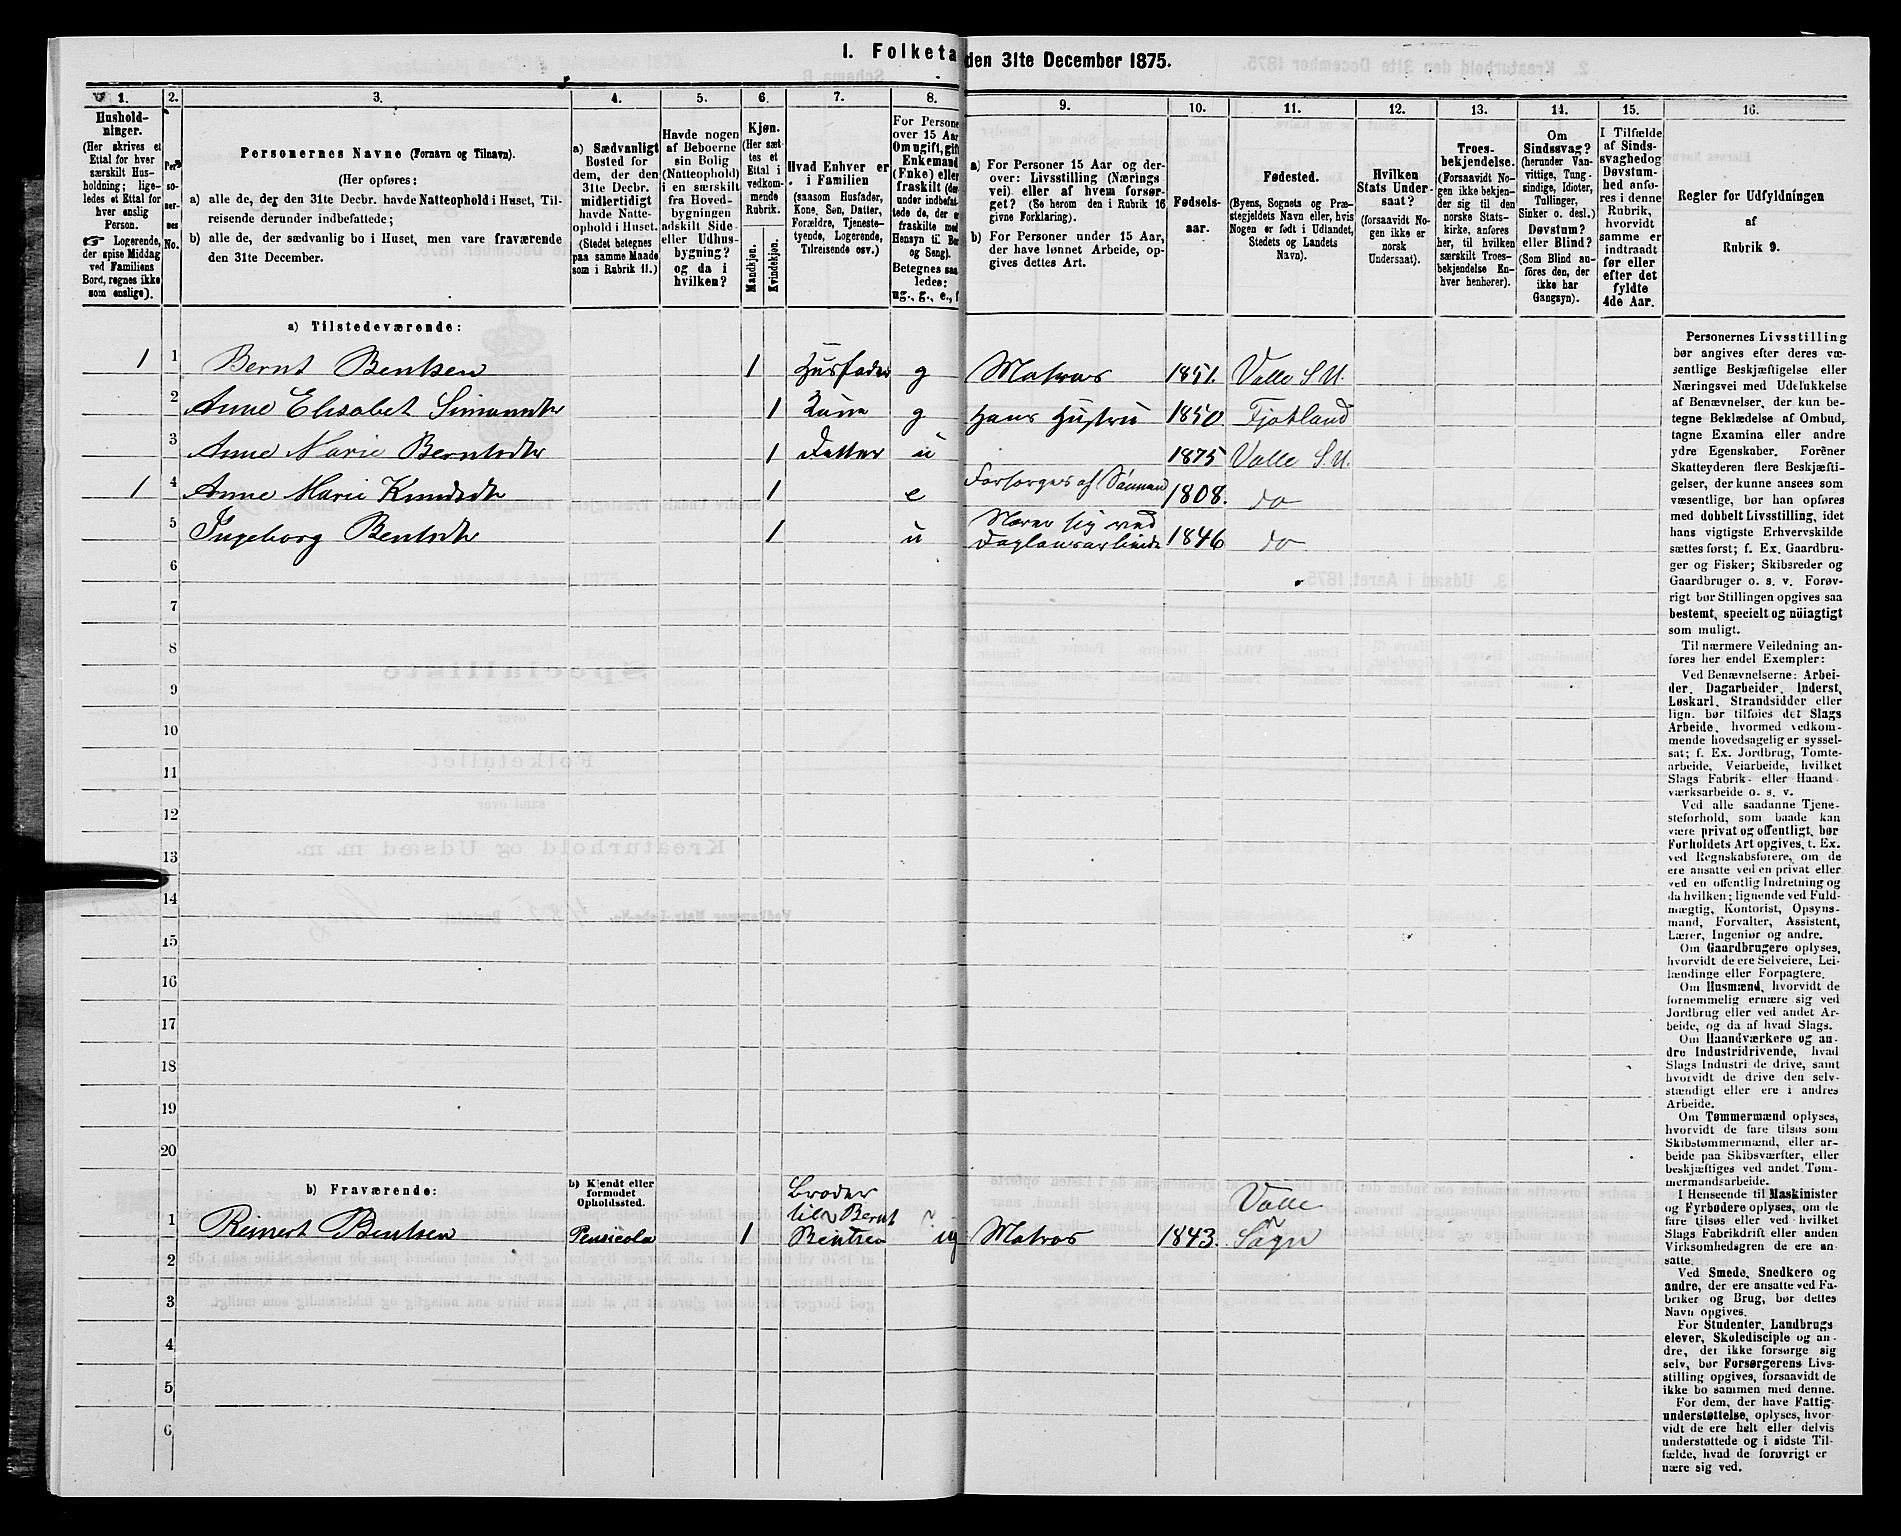 I. Folketa
den 31te December 1875.
1.
2.
3.
4.
5.
6.
7.
8.
9.
10.
11.
12.
13.
14.
15.
16.
Hushold-
ninger.
(Her skrives et
Ettal for hver
særskilt Hus-
holdning; lige-
ledes et Ettal for
hver enslig
Person.
☞ Logerende,
der spise Middag
ved Familiens
Bord, regnes ikke
som enslige).
Per-
so-
ner-
nes
No.
Personernes Navne (Fornavn og Tilnavn).
(Her opføres:
a) alle de, der den 31te Decbr. havde Natteophold i Huset, Til-
reisende derunder indbefattede;
b) alle de, der sædvanlig bo i Huset, men vare fraværende
den 31te December.
a) Sædvanligt
Bosted for
dem, der den
31te Decbr.
midlertidigt
havde Natte-
ophold i Huset.
(Stedet betegnes
paa samme Maade
som i Rubrik 11.)
Havde nogen
af Beboerne
sin Bolig
(Natteophold)
i en særskilt
fra Hoved-
bygningen
adskilt Side-
eller Udhus-
bygning?
og da i
hvilken?
Kjøn.
(Her sæt-
tes et
Ettal i
vedkom-
mende
Rubrik.
Mandkjøn.
Kvindekjøn.
Hvad Enhver er
i Familien
(saasom Husfader,
Kone, Søn, Datter,
Forældre, Tjeneste-
tyende, Logerende,
Tilreisende osv.)
For Persone
over 15 Aar
Om ugift, gift
Enkemand
(Enke) eller
fraskilt (der
under indbefat-
tede de, der er
fraskilte med
Hensyn til Bo
og Seng).
Betegnes saa
ledes:
ug., g., e., f
a) For Personer 15 Aar og der-
over: Livsstilling (Nærings
vei) eller af hvem forsør-
get? (Se herom den i Rubrik 16
givne Forklaring).
b) For Personer under 15 Aar,
der have lønnet Arbeide, op-
gives dettes Art.
Fødsels-
aar.
Fødested.
(Byens, Sognets og Præ-
stegjeldets Navn eller, hvis
Nogen er født i Udlandet,
Stedets og Landets
Navn).
Hvilken
Stats Under-
saat?
(forsaavidt No-
gen ikke er
norsk
Undersaat).
Troes-
bekjendelse.
(Forsaavidt No-
gen ikke bekjen-
der sig til den
norske Stats-
kirke, anføres
her, til hvilken
særskilt Troes-
bekjendelse En-
hver henhører).
Om
Sindssvag?
(herunder Van-
vittige, Tung-
sindige, Idioter,
Tullinger,
Sinker o. desl.)
Døvstum?
eller Blind?
(Som Blind an-
føres den, der
ikke har
Gangsyn).
I Tilfælde
af Sinds-
svaghed og
Døvstum-
hed anfø-
res i denne
Rubrik,
hvorvidt
samme er
indtraadt
før eller
efter det
fyldte
4de Aar.
Regler for Udfyldningen
af
Rubrik 9.
a) Tilstedeværende:
1 1 Bernt Bentsen 1 Husfader g Matros 1851. Valle S.U.
2 Anne Elisabet Simonsdtr 1 Kone g Hans Hustru 1850. Fjotland
3 Anne Marie Berntsdtr 1 Datter u 1875 Valle S.U.
1 4 Anne Marie Knudsdtr 1 e Forsørges af Sønnen 1808. do
5 Ingeborg Bentsdtr 1 u Nærer sig ved
Daglønsarbeide 1846 do
6
7
8
9
10
11
12
13
14
15
16
17
18
19
20
b) Fraværende:
b) Kjendt eller
formodet
Opholdssted.
1 Reinert Bentsen Pensicola 1 Broder
til Bernt
Bentsen ug Matros 1843. Valle
Sogn
2
3
4
5
6
Personernes Livsstilling
bør angives efter deres væ-
sentlige Beskjæftigelse eller
Næringsvei med Udelukkelse
af Benævnelser, der kun be-
tegne Beklædelse af Ombud,
tagne Examina eller andre
ydre Egenskaber. Forêner
Skatteyderen flere Beskjæfti-
gelser, der kunne ansees som
væsentlige, bør han opføres
med dobbelt Livsstilling, idet
hans vigtigste Erhvervskilde
sættes først; f. Ex. Gaardbru-
ger og Fisker; Skibsreder og
Gaardbruger o. s. v. Forøv-
rigt bør Stillingen opgives saa
bestemt, specielt og nöiagtigt
som muligt.
Til nærmere Veiledning an-
føres her endel Exempler:
Ved Benævnelserne: Arbei-
der, Dagarbeider, Inderst,
Løskarl, Strandsidder eller
lign. bør tilføies det Slags
Arbeide, hvormed vedkom-
mende hovedsagelig er syssel-
sat; f. Ex. Jordbrug, Tomte-
arbeide, Veiarbeide, hvilket
Slags Fabrik- eller Haand
værksarbeide o. s. v.
Ved alle saadanne Tjene-
steforhold, som baade kan
være privat og offentligt, bør
Forholdets Art opgives, t. Ex.
ved Regnskabsførere, om de
ere ansatte ved en privat eller
ved en offentlig Indretning og
da hvilken; lignende ved Fuld-
mægtig, Kontorist, Opsyns-
mand, Forvalter, Assistent,
Lærer, Ingeniør og andre.
Om Gaardbrugere oplyses,
hvorvidt de ere Selveiere, Lei-
lændinge eller Forpagtere.
Om Husmænd, hvorvidt de
fornemmelig ernære sig ved
Jordbrug eller ved andet Ar-
beide, og da af hvad Slags.
Om Haandværkere og an-
dre Industridrivende, hvad
Slags Industri de drive, samt
hvorvidt de drive den selv-
stændigt eller ere i andres
Arbeide.
Om Tømmermænd oplyses,
hvorvidt de fare tilsøs som
Skibstømmermænd, eller ar-
beide paa Skibsværfter, eller
beskjæftiges ved andet Tøm-
mermandsarbeide.
I Henseende til Maskinister
og Fyrbødere oplyses, om de
fare tilsøs eller ved hvilket
Slags Fabrikdrift eller anden
Virksomhedsgren de ere an-
satte.
Ved Smede, Snedkere og
andre, der ere ansatte ved Fa-
briker og Brug, bør dettes
Navn opgives.
For Studenter, Landbrugs
elever, Skoledisciple og an-
dre, der ikke forsørge sig
selv, bør Forsørgerens Livs-
stilling opgives, forsaavidt de
ikke bo sammen med denne.
For dem, der have Fattig-
understøttelse, oplyses, hvor-
vidt de ere helt eller delvis
understøttede og i sidste Til-
fælde, hvad de forøvrigt er
nære sig ved.